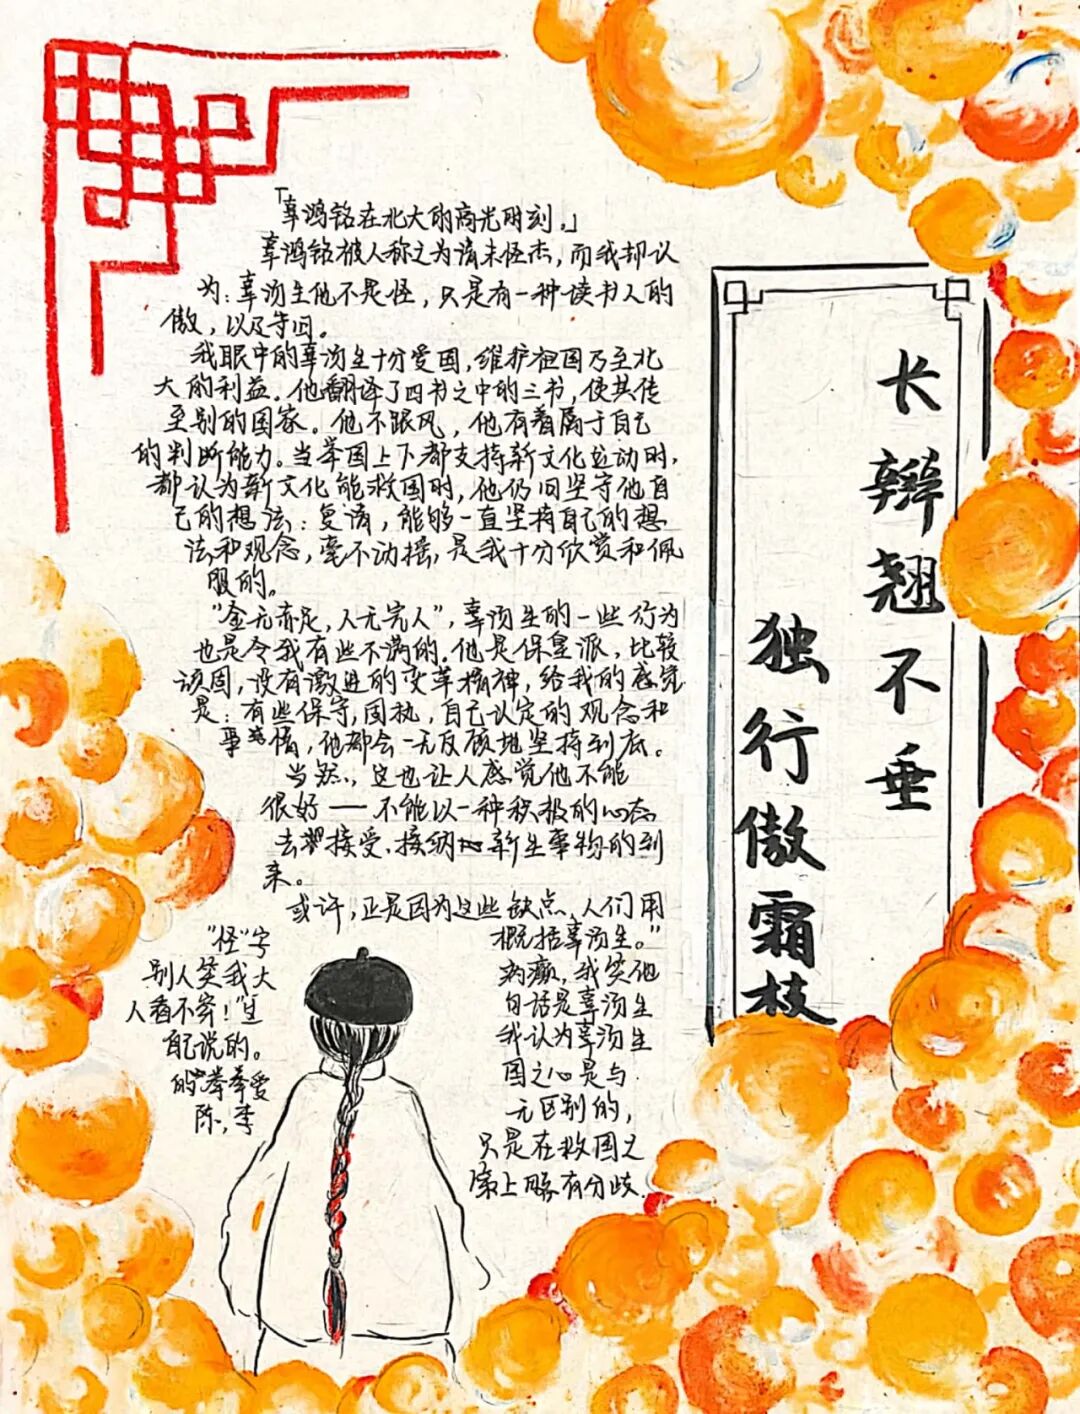 「辜鸿铭在北大的高光时刻。」
辜鸿铭被人称之为清末怪杰，而我却认
为：辜汤生他不是怪，只是有一种读书人的
傲，以及守旧。
我眼中的辜汤生十分爱国，维护祖国乃至北
大的利益。他翻译了四书之中的三书，使其传
至别的国家。他不跟风，他有着属于自己
的判断能力。当举国上下都支持新文化运动时，
都认为新文化能救国时，他仍旧坚守他自
己的想法：复清，能够一直坚持自己的想
法和观念，毫不动摇，是我十分欣赏和佩
服的。
"金无赤足，人无完人"，辜汤生的一些行为
也是令我有些不满的。他是保皇派，比较
顽固，没有激进的变革精神，给我的感觉
是：有些保守，固执，自己认定的观念和
事情，他都会一无反顾地坚持到底。
当然，这也让人感觉他不能
很好——不能以一种积极的心态
去接受、接纳新生事物的到
来。
或许，正是因为这些缺点，人们用
"怪"字 概括辜汤生。"
别人笑我大 疯癫，我笑他
人看不穿！"这 句话是辜汤生
自己说的。 我认为辜汤生
的拳拳爱 国之心是与
陈，李 无区别的，
只是在救国之
策上略有分歧.
长辫翘不垂
独行傲霜枝